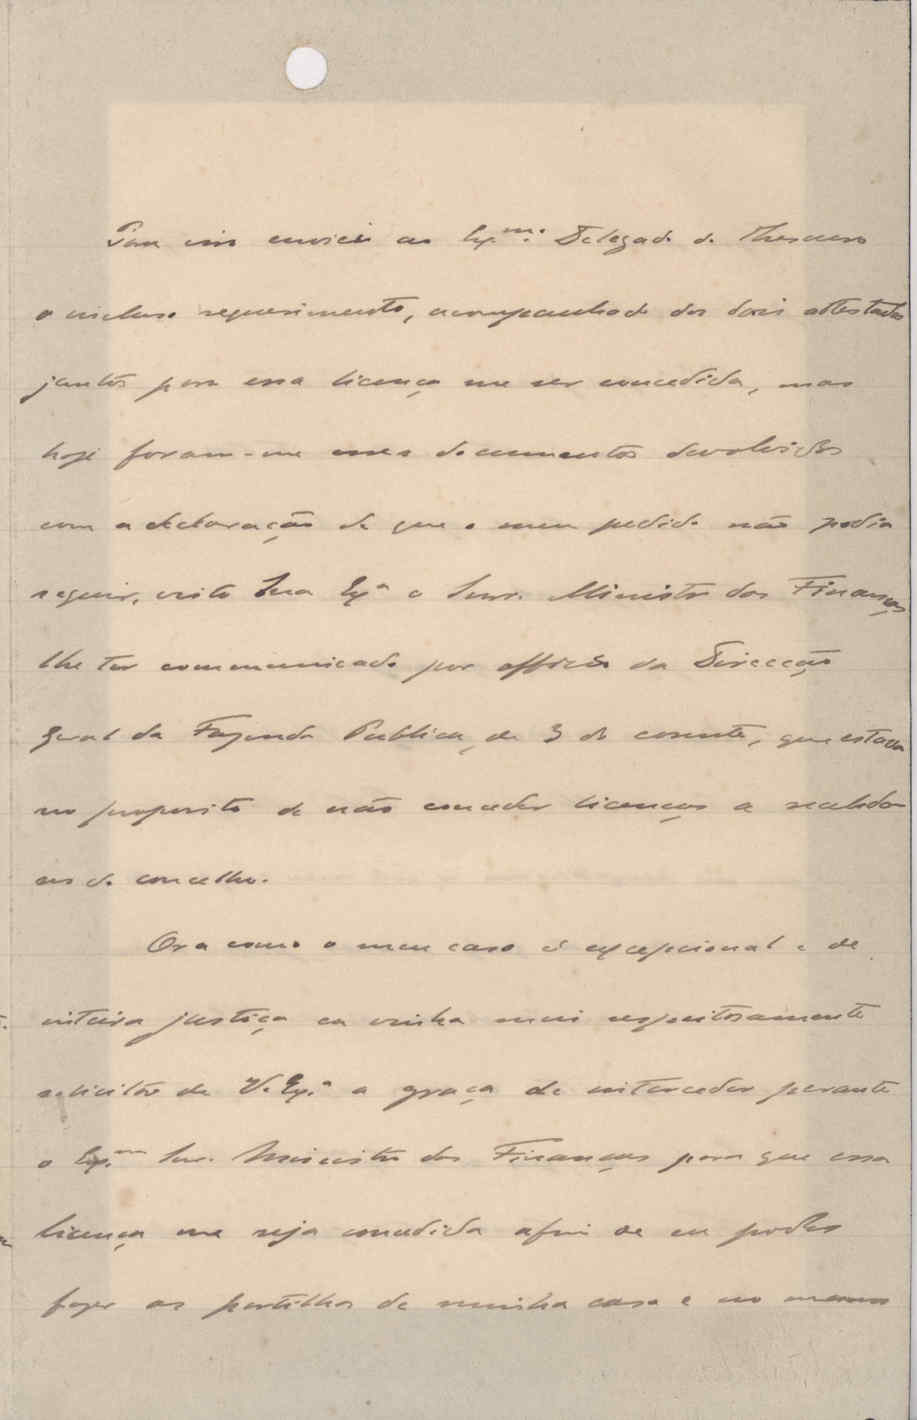 Para isso enviei ao Exmo. Delegado do Thesouro
o incluso requerimento, acompanhado dos dois attestados
juntos para essa licença me ser concedida, mas
hoje foram-me esses documentos devolvidos
com a declaração de que o meu pedido não podia
seguir, visto Sua Exa o Snr. Ministro das Finanças
lhe ter communicado por officio da Direcção
Geral da Fazenda Publica, de 3 do corrente, que estava
no proposito de não conceder licenças a recebedo-
res do concelho.
Ora como o meu caso é excepcional e de
inteira justiça eu vinha mui respeitosamente
solicitar de V. Exa. a graça de interceder perante
o Exmo Snr. Ministro das Finanças para que essa
licença me seja concedida afim de eu poder
fazer as partilhas de minha casa e no mesmo